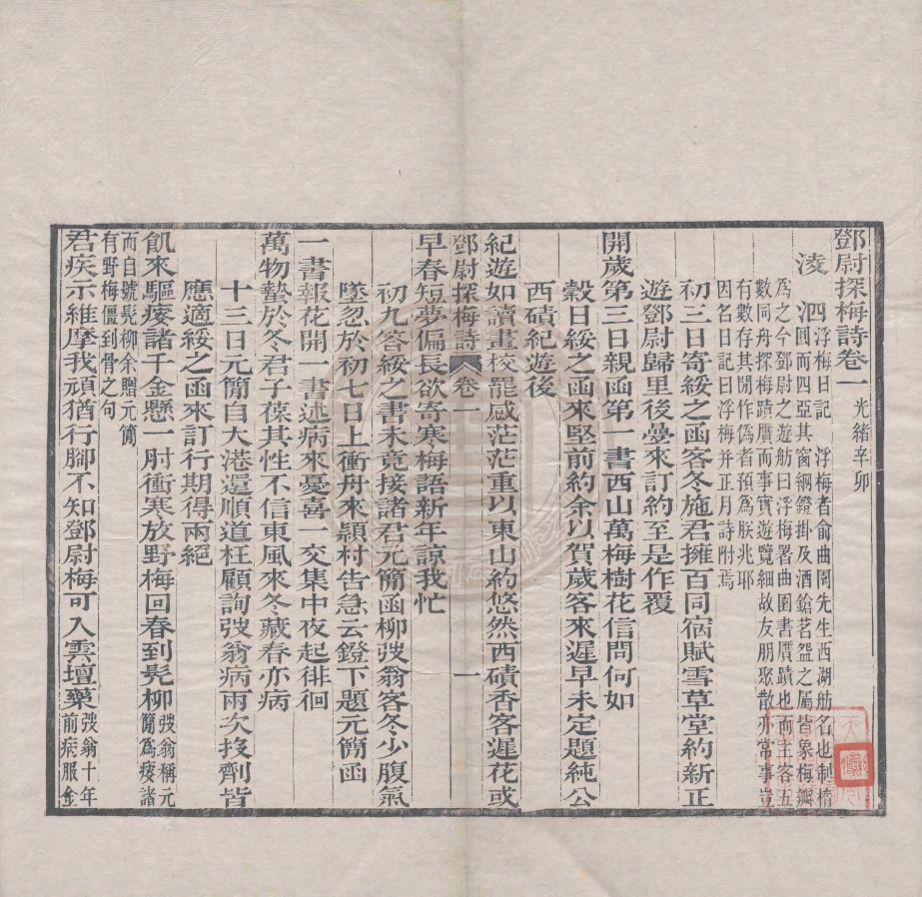 鄧尉探梅詩卷一 光緒辛卯
淩泗 浮梅日記 浮梅者俞曲園先生西湖舫名也制橢
圓而四亞其窗綱鐙掛及酒鎗茗盌之屬皆象梅瓣
為之今鄧尉之遊舫曰浮梅署曲園書贋蹟也而主客五
數同舟探梅蹟贋而事實遊覽細故友朋聚散亦常事豈
有數存其閒作偽者預為朕兆耶
因名日記曰浮梅并正月詩附焉
初三日寄綏之函客冬施君擁百同宿賦雪草堂約新正
遊鄧尉歸里後曼來訂約至是作覆
開歲第三日親函第一書西山萬梅樹花信問何如
穀日綏之函來堅前約余以賀歲客來遲早未定題純公
西磧紀遊後
紀遊如讀畫校罷感茫茫重以東山約悠然西磧香客遲花或
鄧尉探梅詩 卷一 一
早春短夢偏長欲寄寒梅語新年諒我忙
初九答綏之書未竟接諸君元簡函柳弢翁客冬少腹氣
墜忽於初七日上衝舟來潁村告急云鐙下題元簡函
一書報花開一書述病來憂喜一交集中夜起徘徊
萬物蟄於冬君子葆其性不信東風來冬藏春亦病
十三日元簡自大港還順道枉顧詢弢翁病兩次投劑皆
應適綏之函來訂行期得兩絕
飢來驅痿諸千金懸一肘衝寒放野梅回春到髡柳 弢翁稱元簡為痿諸
而自號髡柳余贈元簡
有野梅僵到骨之句
君疾示維摩我頑猶行腳不知鄧尉梅可入雲壇藥 弢翁十年前病服金